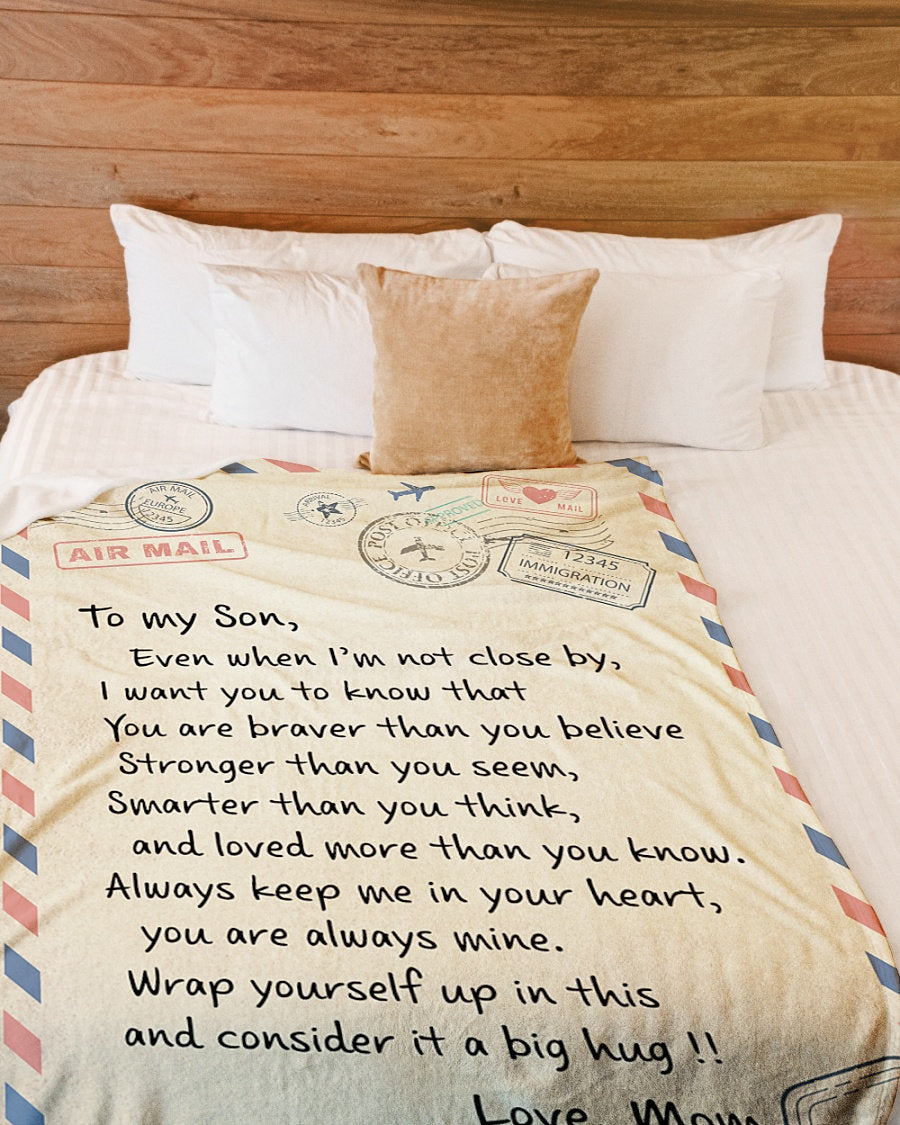 AIR MAIL
EUROPE
12345
ARRIVAL
12345
LOVE MAIL
POST OFFICE POST OFFICE
12345
IMMIGRATION
AIR MAIL
To my Son,
Even when I'm not close by,
I want you to know that
You are braver than you believe
Stronger than you seem,
Smarter than you think,
and loved more than you know.
Always keep me in your heart,
you are always mine.
Wrap yourself up in this
and consider it a big hug !!
Love Mom